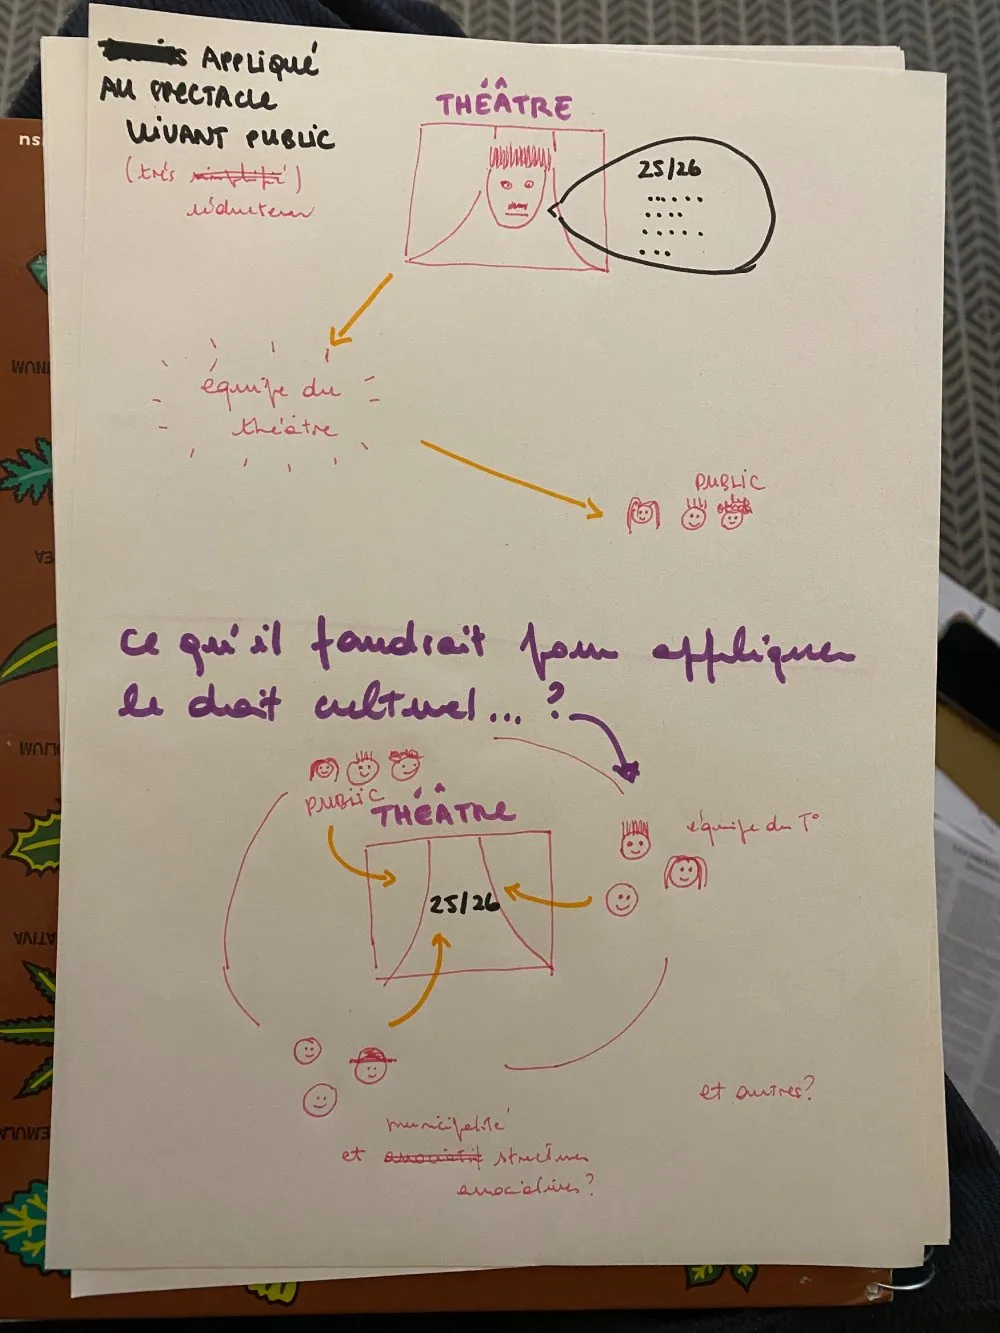 APPLIQUÉ
AU SPECTACLE
VIVANT PUBLIC
(très simplifié)
réducteur
THÉÂTRE
25/26
équipe du
théâtre
PUBLIC
ce qu'il faudrait pour appliquer
le droit culturel... ?
PUBLIC
THÉÂTRE
équipe du T°
25/26
et autres?
municipalité
et associatif structures
associatives?